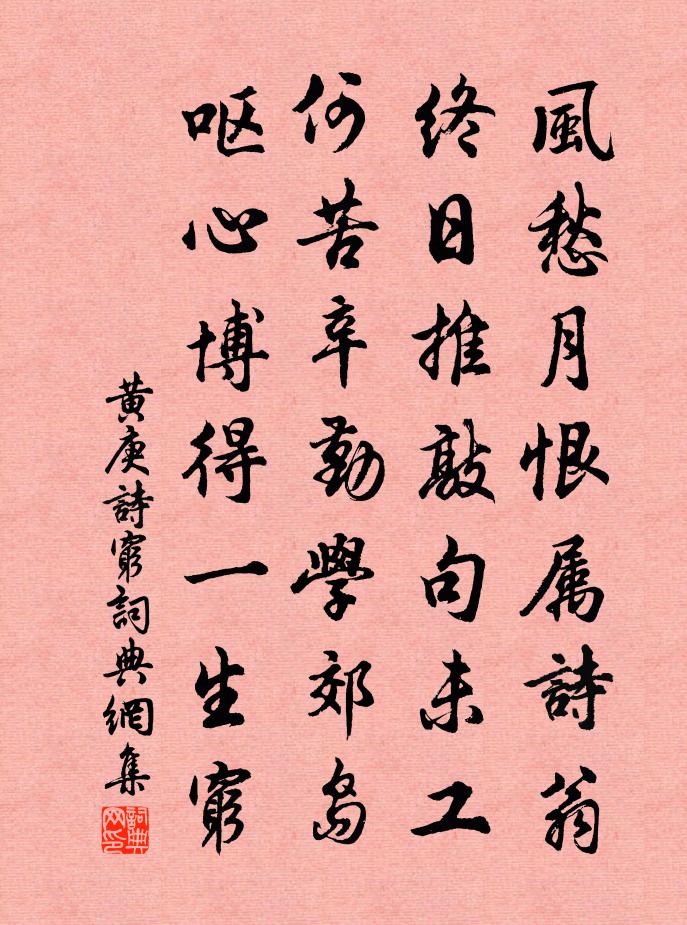 風愁月恨属詩翁
終日推敲句未工
何苦辛勤學郊島
呕心博得一生窮
黄庚詩窮詞典網集
詞典网印